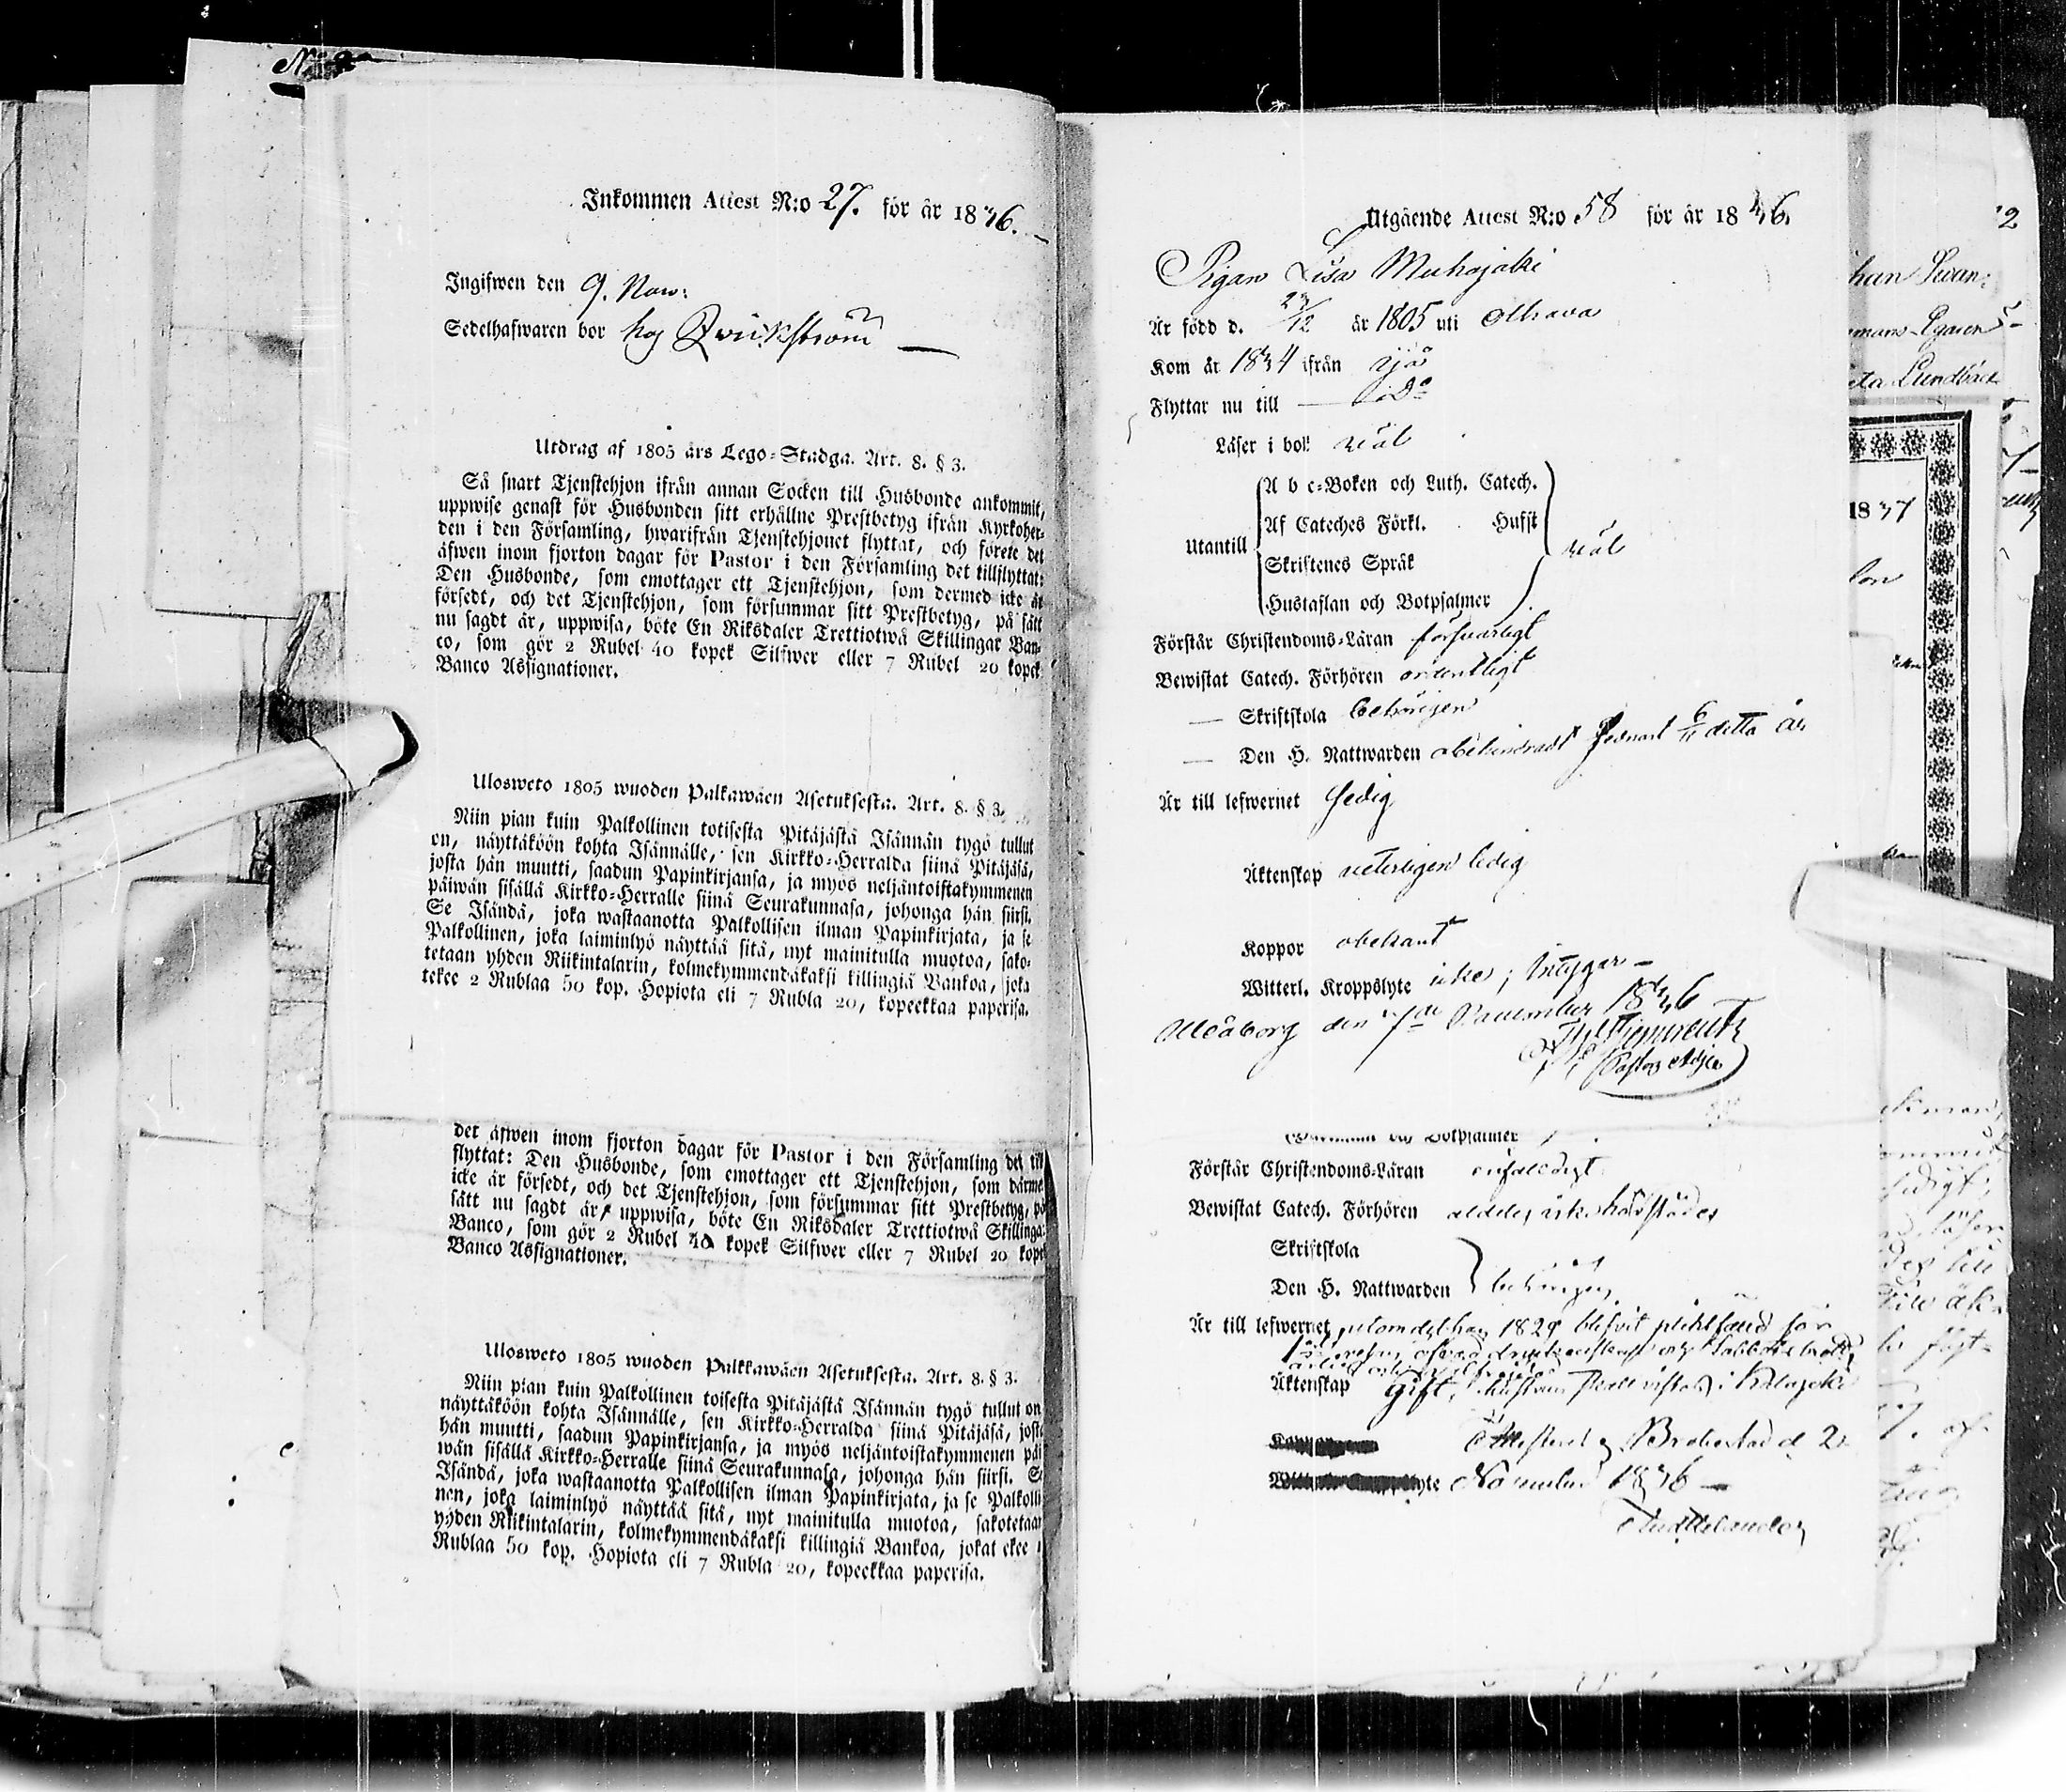 Inkommen Attest N:o 27. för år 1836.
Ingifwen den 9. Nov:
Sedelhafwaren bor hos
Utdrag af 1805 års Lego-Stadga. Art. 8. § 3.
Så snart Tjenstehjon ifrån annan Socken till Husbonde ankommit,
uppwise genast för Husbonden sitt erhållne Prestbetyg ifrån Kyrkoher-
den i den Församling, hwarifrån Tjenstehjonet flyttat, och förete det
äfwen inom fjorton dagar för Pastor i den Församling det tillflyttat:
Den Husbonde, som emottager ett Tjenstehjon, som dermed icke är
försedt, och det Tjenstehjon, som försummar sitt Prestbetyg, på sätt
nu sagdt är, uppwisa, böte En Riksdaler Trettiotwå Skillingar Ban-
co, som gör 2 Rubel 40 kopek Silfwer eller 7 Rubel 20 kopek
Banco Assignationer.
Ulosweto 1805 wuoden Palkawäen Asetuksesta. Art. 8. § 3.
Niin pian kuin Palkollinen totisesta Pitäjästä Isännän tygö tullut
on, näyttäköön kohta Isännälle, sen Kirkko-Herralda siinä Pitäjäsä,
josta hän muutti, saadun Papinkirjansa, ja myös neljäntoistakymmenen
päiwän sisällä Kirkko-Herralle siinä Seurakunnasa, johonga hän siirsi.
Se Isändä, joka wastaanotta Palkollisen ilman Papinkirjata, ja se
Palkollinen, joka laiminlyö näyttää sitä, nyt mainitulla muotoa, sako-
tetaan yhden Riikintalarin, kolmekymmendäkaksi killingiä Bankoa, joka
tekee 2 Rublaa 50 kop. Hopiota eli 7 Rubla 20, kopeekkaa paperisa.
det äfwen inom fjorton dagar för Pastor i den Församling det till
flyttat: Den Husbonde, som emottager ett Tjenstehjon, som därme
icke är försedt, och det Tjenstehjon, som försummar sitt Prestbetyg, på
sätt nu sagdt är, uppwisa, böte En Riksdaler Trettiotwå Skillinga
Banco, som gör 2 Rubel 40 kopek Silfwer eller 7 Rubel 20 kope
Banco Assignationer.
Ulosweto 1805 wuoden Palkkawäen Asetuksesta. Art. 8. § 3.
Niin pian kuin Palkollinen toisesta Pitäjästä Isännän tygö tullut on,
näyttäköön kohta Isännälle, sen Kirkko-Herralda siinä Pitäjäsä, josta
hän muutti, saadun Papinkirjansa, ja myös neljäntoistakymmenen päi
wän sisällä Kirkko-Herralle siinä Seurakunnasa, johonga hän siirsi. Se
Isändä, joka wastaanotta Palkollisen ilman Papinkirjata, ja se Palkolli
nen, joka laiminlyö näyttää sitä, nyt mainitulla muotoa, sakotetaan
yhden Riikintalarin, kolmekymmendäkaksi killingiä Bankoa, jokat ekee
Rublaa 50 kop. Hopiota eli 7 Rubla 20, kopeekkaa paperisa.
Utgående Attest N:o 58 för år 1836.
Pigan Lisa Muhajoki
Är född d. 27/12 år 1805 uti Olhava
Kom år 1834 ifrån Ijo
Flyttar nu till — Do
Läser i bok wäl
A b c-Boken och Luth. Catech.
Af Cateches Förkl. Hufst
Utantill wäl
Skriftenes Språk
Hustaflan och Botpsalmer
Förstår Christendoms-Läran försvarligt
Bewistat Catech. Förhören ordentligt
— Skriftskola behörigen
— Den H. Nattwarden obehindradt senast 6/11 detta år
Är till lefwernet ledig
Äktenskap veterligen ledig
Koppor obekant
Witterl. Kroppslyte icke; intygar —
Uleåborg den 7de November 1836
Pastor Adj:s
Förstår Christendoms-Läran enfaldigt
Bewistat Catech. Förhören
Skriftskola
Den H. Nattwarden behörigen
Är till lefwernet 1829 blifvit för
Äktenskap Gift, hustrun skall vistas i Kalajoki
Brahestad d. 2
November 1836 —
1837